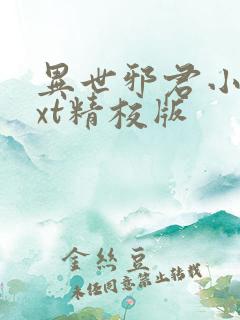 異世邪君小
xt精校版
金丝豆
未经同意禁止转载